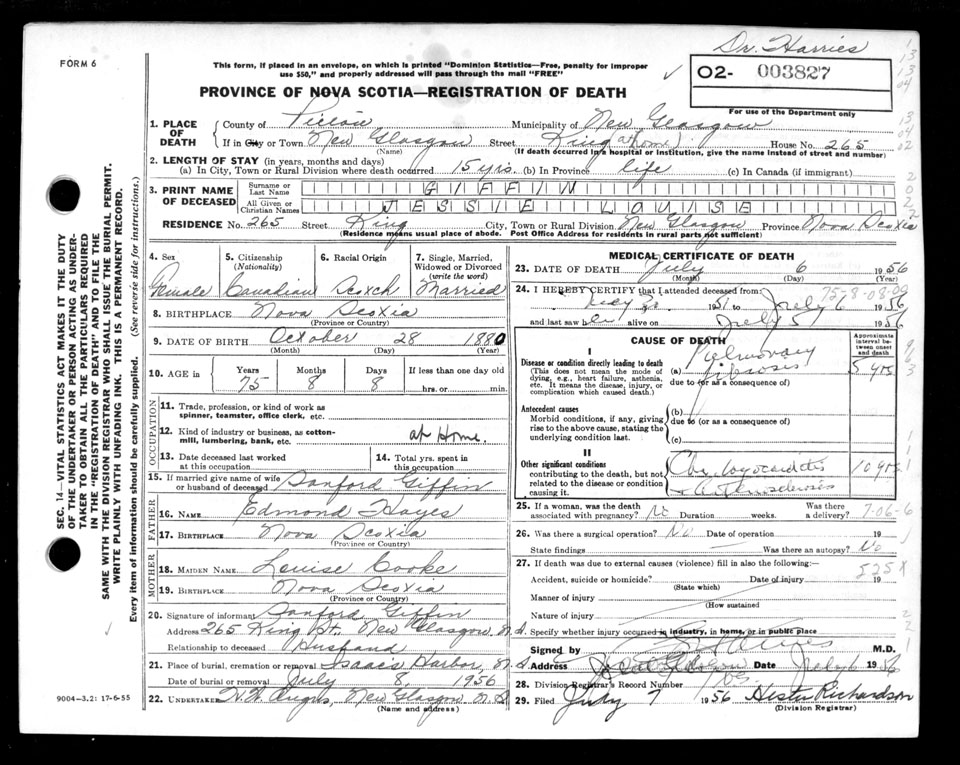 Dr. Harries
FORM 6
This form, if placed in an envelope, on which is printed "Dominion Statistics—Free, penalty for improper
use $50," and properly addressed will pass through the mail "FREE"
02- 003827
For use of the Department only
PROVINCE OF NOVA SCOTIA—REGISTRATION OF DEATH
1. PLACE OF DEATH
County of Pictou Municipality of New Glasgow
If in City or Town New Glasgow Street King (at home) House No. 265
(Name) (If death occurred in a hospital or institution, give the name instead of street and number)
2. LENGTH OF STAY (in years, months and days)
(a) In City, Town or Rural Division where death occurred 15 yrs. (b) In Province life (c) In Canada (if immigrant)
3. PRINT NAME OF DECEASED
Surname or Last Name GIFFIN
All Given or Christian Names JESSIE LOUISE
RESIDENCE No. 265 Street King City, Town or Rural Division New Glasgow Province Nova Scotia
(Residence means usual place of abode. Post Office Address for residents in rural parts not sufficient)
4. Sex Female
5. Citizenship (Nationality) Canadian
6. Racial Origin Scotch
7. Single, Married, Widowed or Divorced (write the word) Married
8. BIRTHPLACE Nova Scotia
(Province or Country)
9. DATE OF BIRTH October 28 1880
(Month) (Day) (Year)
10. AGE in Years 75 Months 8 Days 8 If less than one day old hrs. or min.
OCCUPATION
11. Trade, profession, or kind of work as spinner, teamster, office clerk, etc.
12. Kind of industry or business, as cotton-mill, lumbering, bank, etc. at Home.
13. Date deceased last worked at this occupation
14. Total yrs. spent in this occupation
15. If married give name of wife or husband of deceased Sanford Giffin
FATHER
16. NAME Edmond Hayes
17. BIRTHPLACE Nova Scotia
(Province or Country)
MOTHER
18. MAIDEN NAME Louise Cooke
19. BIRTHPLACE Nova Scotia
(Province or Country)
20. Signature of informant Sanford Giffin
Address 265 King St., New Glasgow, N.S.
Relationship to deceased Husband
21. Place of burial, cremation or removal Isaac's Harbor, N.S.
Date of burial or removal July 8 1956
22. UNDERTAKER New Glasgow N.S.
(Name and address)
MEDICAL CERTIFICATE OF DEATH
23. DATE OF DEATH July 6 1956
(Month) (Day) (Year)
24. I HEREBY CERTIFY that I attended deceased from: 75-8-08-09
July 6 1956
and last saw her alive on July 5 1956
CAUSE OF DEATH
Approximate interval between onset and death
I
Disease or condition directly leading to death
(This does not mean the mode of dying, e.g., heart failure, asthenia, etc. It means the disease, injury, or complication which caused death.)
(a) Pulmonary fibrosis 5 yrs
due to (or as a consequence of)
Antecedent causes
Morbid conditions, if any, giving rise to the above cause, stating the underlying condition last.
(b)
due to (or as a consequence of)
(c)
II
Other significant conditions
contributing to the death, but not related to the disease or condition causing it.
Chr. Myocarditis 10 yrs
25. If a woman, was the death associated with pregnancy? No Duration weeks. Was there a delivery? 7-06-6
26. Was there a surgical operation? No Date of operation 19
State findings Was there an autopsy? No
27. If death was due to external causes (violence) fill in also the following:—
525X
Accident, suicide or homicide? Date of injury 19
(State which)
Manner of injury
(How sustained
Nature of injury
Specify whether injury occurred in industry, in home, or in public place
Signed by M.D.
Address New Glasgow Date July 6 1956
28. Division Registrar's Record Number
29. Filed July 7 1956 Hester Richardson
(Division Registrar)
SEC. 14—VITAL STATISTICS ACT MAKES IT THE DUTY
OF THE UNDERTAKER OR PERSON ACTING AS UNDER-
TAKER TO OBTAIN ALL THE PARTICULARS REQUIRED
IN THE "REGISTRATION OF DEATH" AND TO FILE THE
SAME WITH THE DIVISION REGISTRAR WHO SHALL ISSUE THE BURIAL PERMIT.
WRITE PLAINLY WITH UNFADING INK. THIS IS A PERMANENT RECORD.
Every item of information should be carefully supplied. (See reverse side for instructions.)
9004-3.2: 17-6-55